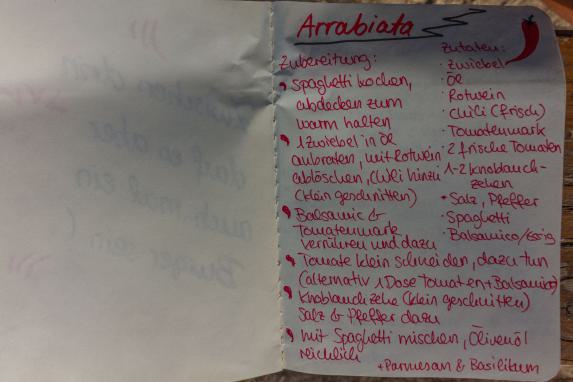 Arrabiata
Zubereitung:
Spaghetti kochen,
abdecken zum
warm halten
1 Zwiebel in Öl
anbraten, mit Rotwein
ablöschen, Chili hinzu
(klein geschnitten)
Balsamic &
Tomatenmark
verrühren und dazu
Tomate klein schneiden, dazu tun
(alternativ 1 Dose Tomaten + Balsamico)
Knoblauchzehe (klein geschnitten)
Salz & Pfeffer dazu
mit Spaghetti mischen, Olivenöl
reichlich
+ Parmesan & Basilikum
Zutaten:
· Zwiebel
· Öl
· Rotwein
· Chili (frisch)
· Tomatenmark
· 2 frische Tomaten
· 1-2 Knoblauch-
zehen
· Salz, Pfeffer
· Spaghetti
· Balsamico/Essig
zwischen drin
darf es aber
auch mal ein
Burger sein!